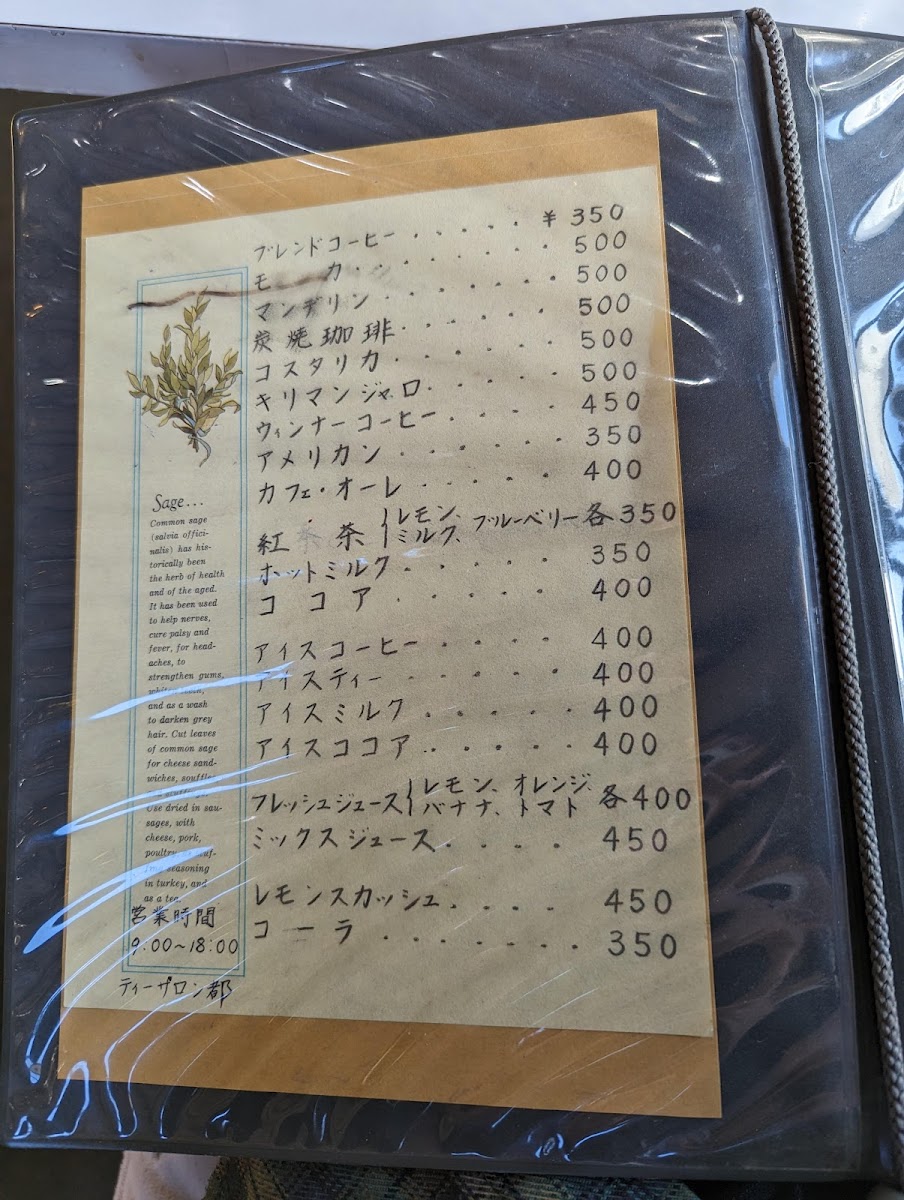 ブレンドコーヒー・・・・・¥350
モーカ・・・・・・500
マンデリン・・・・・・500
炭焼珈琲・・・・・・500
コスタリカ・・・・・・500
キリマンジャロ・・・・・500
ウィンナーコーヒー・・・・・450
アメリカン・・・・・・350
カフェ・オーレ・・・・・400
紅茶{レモン、ミルク、ブルーベリー各350
ホットミルク・・・・・350
ココア・・・・・400
アイスコーヒー・・・・・400
アイスティー・・・・・400
アイスミルク・・・・・400
アイスココア・・・・・400
フレッシュジュース{レモン、オレンジ、バナナ、トマト 各400
ミックスジュース・・・・450
レモンスカッシュ・・・・450
コーラ・・・・・・・350
Sage...
Common sage
(salvia offici-
nalis) has his-
torically been
the herb of health
and of the aged.
It has been used
to help nerves,
cure palsy and
fever, for head-
aches, to
strengthen gums,
and as a wash
to darken grey
hair. Cut leaves
of common sage
for cheese sand-
wiches, souffles
Use dried in sau-
sages, with
cheese, pork,
poultry,
seasoning
in turkey, and
as a tea.
営業時間
9:00~18:00
ティーサロン都